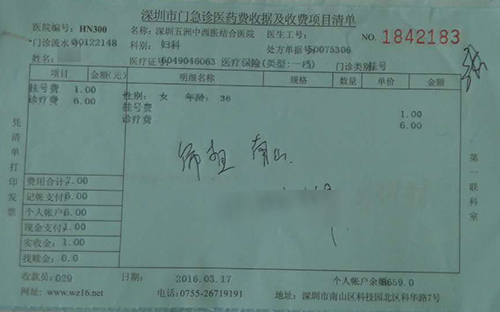 深圳市门急诊医药费收据及收费项目清单
医院编号: HN300 医院名称: 深圳五洲中西医结合医院 医生工号: NO. 1842183
门诊流水号0122148 科别: 妇科 处方单据号50075306
姓名: 医疗证号6049046063 医疗保险(类型:一档) 门诊类别挂号
项目 金额(元) 明细名称 规格 数量 单价 金额
挂号费 1.00 性别: 女 年龄: 36
诊疗费 6.00 挂号费 1.00
诊疗费 6.00
南山
费用合计7.00
记帐支付6.00
个人帐户0.00
现金支付1.00
实收金: 1.00
找赎金: 0.0
凭清单打印发票
第一联科室
收款员: 029 日期: 2016.03.17 个人帐户余额659.0
网址: www.wz16.net 电话: 0755-26719191 地址: 深圳市南山区科技园北区科华路7号